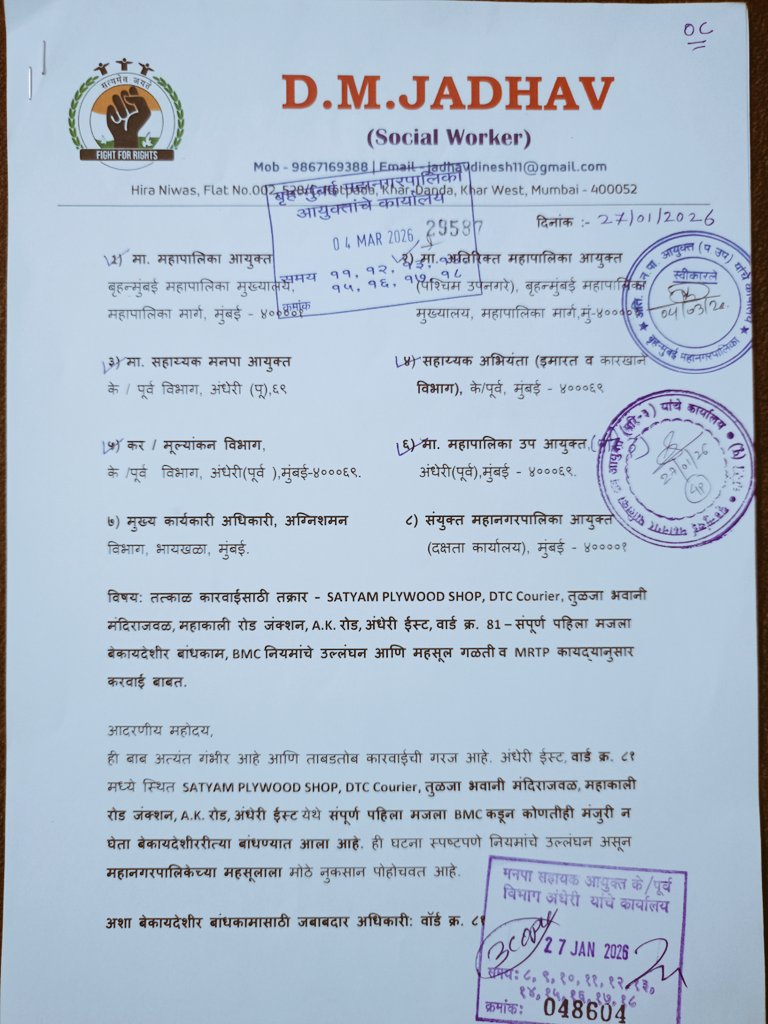 OC
सत्यमेव जयते
FIGHT FOR RIGHTS
D.M.JADHAV
(Social Worker)
Mob - 9867169388 | Email - jadhavdinesh11@gmail.com
Hira Niwas, Flat No.002, Khar Danda, Khar West, Mumbai - 400052
दिनांक :- 27/01/2026
बृहन्मुंबई महानगरपालिका
आयुक्तांचे कार्यालय
04 MAR 2026 29587
समय ११, १२, १३,
१५, १६, १७, १८
क्रमांक
१) मा. महापालिका आयुक्त
बृहन्मुंबई महापालिका मुख्यालय,
महापालिका मार्ग, मुंबई - ४००००१
२) मा. अतिरिक्त महापालिका आयुक्त
(पश्चिम उपनगरे), बृहन्मुंबई महापालिका
मुख्यालय, महापालिका मार्ग,मुं-४००००
आयुक्त (प. उप) यांचे कार्यालय
स्वीकारले
04/03/26
बृहन्मुंबई महानगरपालिका
३) मा. सहाय्यक मनपा आयुक्त
के / पूर्व विभाग, अंधेरी (पू),६९
४) सहाय्यक अभियंता (इमारत व कारखाने
विभाग), के/पूर्व, मुंबई - ४०००६९
५) कर / मूल्यांकन विभाग,
के /पूर्व विभाग, अंधेरी(पूर्व ),मुंबई-४०००६९.
६) मा. महापालिका उप आयुक्त,
अंधेरी(पूर्व),मुंबई - ४०००६९.
यांचे कार्यालय
27/01/26
७) मुख्य कार्यकारी अधिकारी, अग्निशमन
विभाग, भायखळा, मुंबई.
८) संयुक्त महानगरपालिका आयुक्त
(दक्षता कार्यालय), मुंबई - ४००००१
विषय: तत्काळ कारवाईसाठी तक्रार - SATYAM PLYWOOD SHOP, DTC Courier, तुळजा भवानी
मंदिराजवळ, महाकाली रोड जंक्शन, A.K. रोड, अंधेरी ईस्ट, वार्ड क्र. 81 – संपूर्ण पहिला मजला
बेकायदेशीर बांधकाम, BMC नियमांचे उल्लंघन आणि महसूल गळती व MRTP कायद्यानुसार
करवाई बाबत.
आदरणीय महोदय,
ही बाब अत्यंत गंभीर आहे आणि ताबडतोब कारवाईची गरज आहे. अंधेरी ईस्ट, वार्ड क्र. ८१
मध्ये स्थित SATYAM PLYWOOD SHOP, DTC Courier, तुळजा भवानी मंदिराजवळ, महाकाली
रोड जंक्शन, A.K. रोड, अंधेरी ईस्ट येथे संपूर्ण पहिला मजला BMC कडून कोणतीही मंजुरी न
घेता बेकायदेशीररीत्या बांधण्यात आला आहे. ही घटना स्पष्टपणे नियमांचे उल्लंघन असून
महानगरपालिकेच्या महसूलाला मोठे नुकसान पोहोचवत आहे.
अशा बेकायदेशीर बांधकामासाठी जबाबदार अधिकारी: वॉर्ड क्र. ८१
मनपा सहायक आयुक्त के/पूर्व
विभाग अंधेरी यांचे कार्यालय
3 COPY
27 JAN 2026
समय: ८, ९, १०, ११, १२, १३,
१४, १५, १६, १७, १८
क्रमांक: 048604